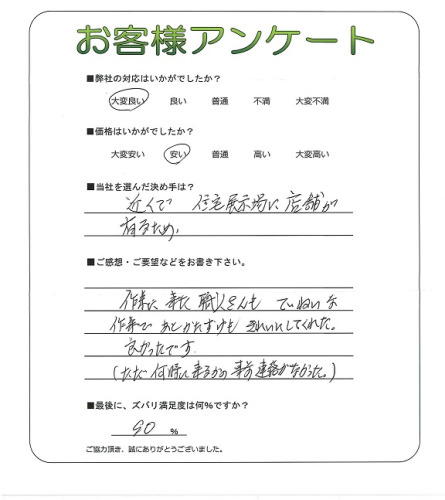 お客様アンケート
■弊社の対応はいかがでしたか？
大変良い 良い 普通 不満 大変不満
■価格はいかがでしたか？
大変安い 安い 普通 高い 大変高い
■当社を選んだ決め手は？
近くで 住宅展示場に店舗が
有るため。
■ご感想・ご要望などをお書き下さい。
作業に来た職人さんも ていねいな
作業であとかたずけも きれいにしてくれた。
良かったです
(ただ何時に来るかの事前連絡がなかった。)
■最後に、ズバリ満足度は何%ですか？
90 %
ご協力頂き、誠にありがとうございました。